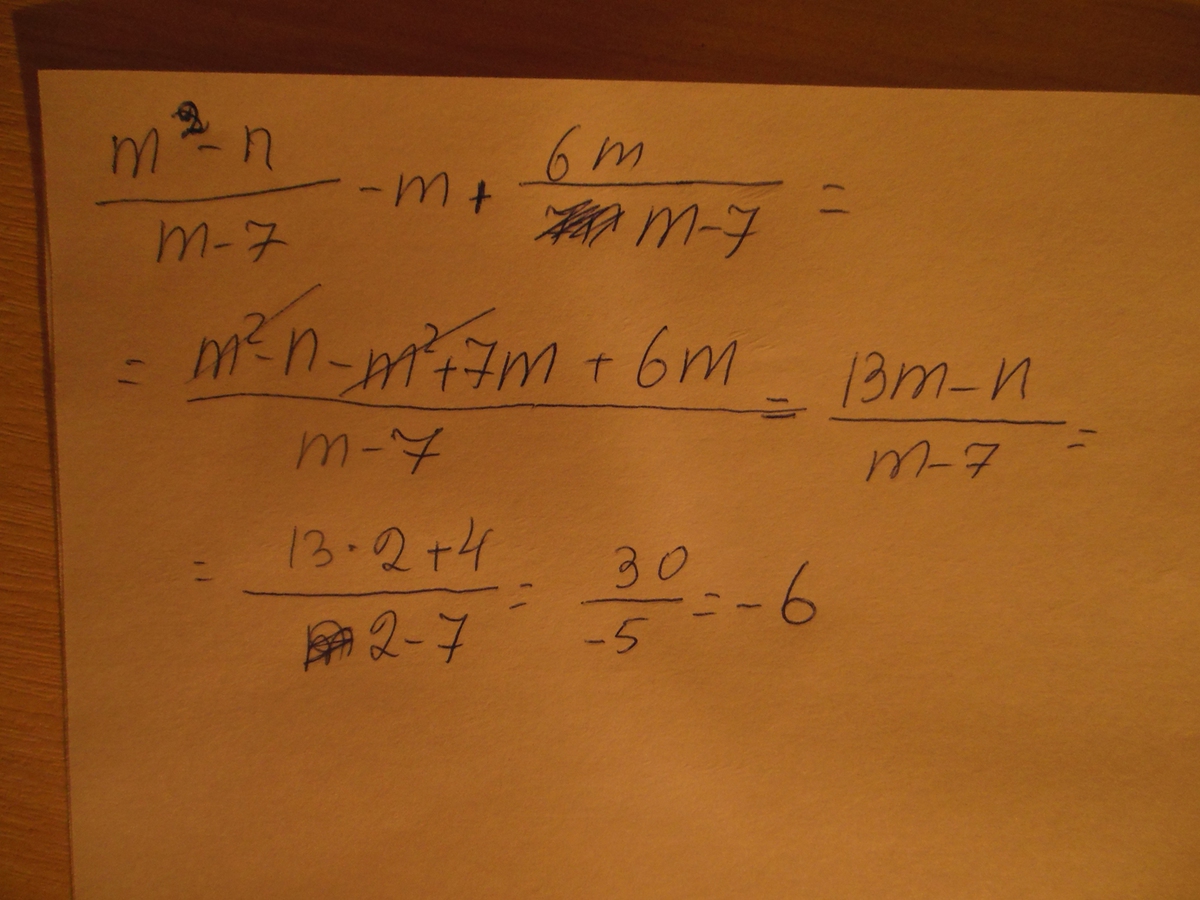 (m² - n)/(m - 7) - m + 6m/(m - 7) =
= (m² - n - m² + 7m + 6m)/(m - 7) = (13m - n)/(m - 7) =
= (13 · 2 + 4)/(2 - 7) = 30/-5 = -6